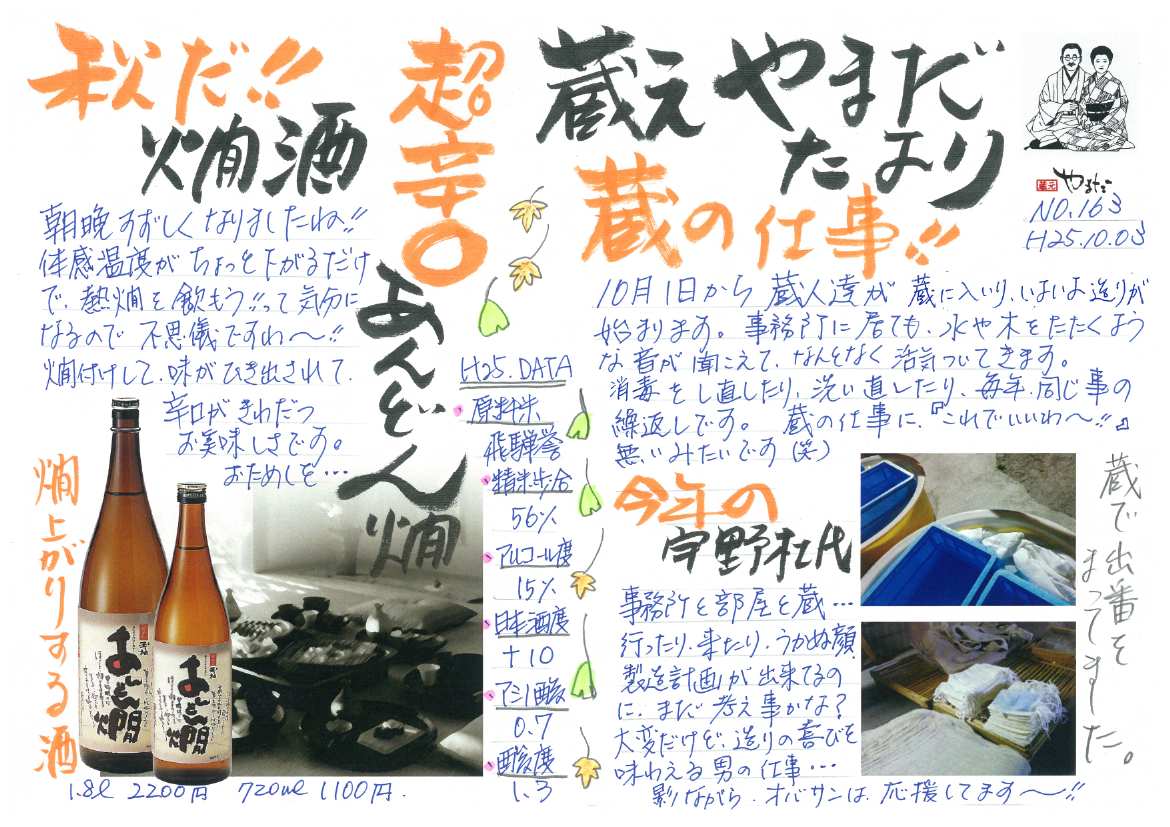 蔵元 やまだ
たより
やまだ
NO.163
H25.10.03
蔵の仕事!!
10月1日から 蔵人達が 蔵に入いり、いよいよ造りが
始まります。事務所に居ても、水や木をたたくよう
な音が聞こえて、なんとなく 活気ついてきます。
消毒をし直したり、洗い直したり、毎年、同じ事の
繰返しです。 蔵の仕事に、『これでいいわ〜!!』
無いみたいです(笑)
今年の
宇野杜氏
事務所と部屋と蔵…
行ったり、来たり、うかぬ顔
製造計画が出来てるの
に、まだ 考え事かな?
大変だけど、造りの喜びを
味わえる男の仕事…
影ながら、オバサンは、応援してます〜!!
蔵で出番を
まってました。
超辛口
あんどん
燗
H25.DATA
原料米
飛騨誉
精米歩合
56%
アルコール度
15%
日本酒度
+10
アミノ酸
0.7
酸度
1.3
秋だ!!
燗酒
朝晩すずしくなりましたね!!
体感温度が ちょっと下がるだけ
で、熱燗を飲もう!!って気分に
なるので 不思儀ですわ〜!!
燗付けして、味がひき出されて、
辛口がきわだつ
お美味しさです。
おためしを…
燗上がりする酒
1.8ℓ 2200円 720ml 1100円.